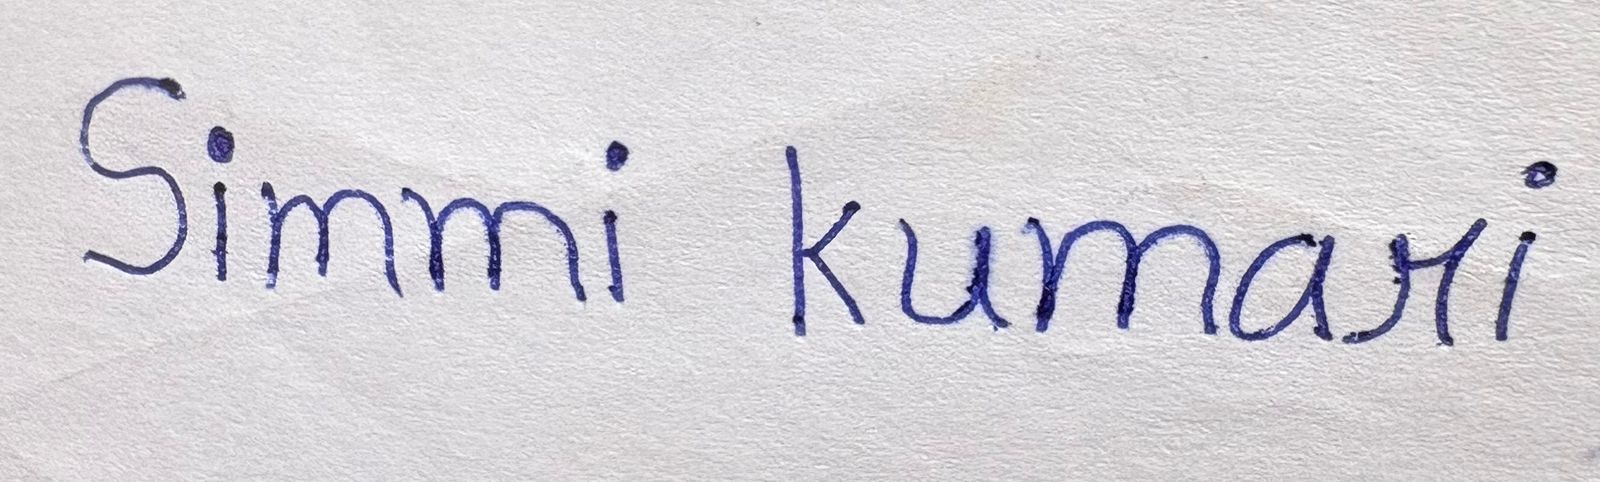 Simmi kumari